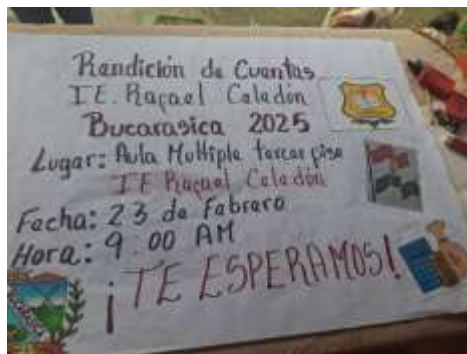 Rendición de Cuentas
I.E. Rafael Celedón
Bucarasica 2025
Lugar: Aula Multiple tercer piso
I E Rafael Celedón
Fecha: 23 de Febrero
Hora: 9:00 AM
¡TE ESPERAMOS!